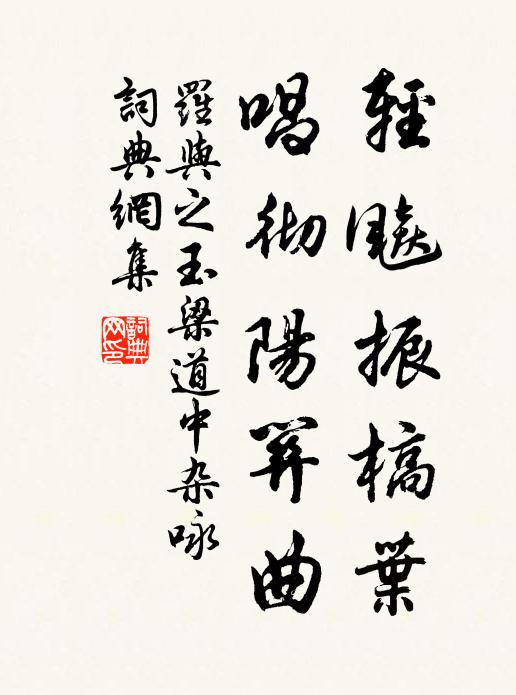 輕飈振槁葉
唱彻陽關曲
羅與之玉梁道中杂咏
詞典網集
詞典网印